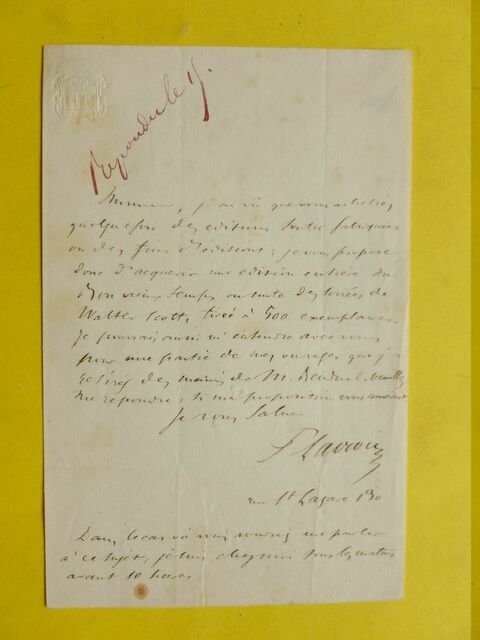 Repondu le 15.
Monsieur, j'ai vu que vous achetiez
quelquefois des editions toutes fabriquées
ou des fins d'editions; je vous propose
donc d'acquerir une edition entière du
Bon vieux temps, ou suite des soirées de
Walter Scott, tirée à 500 exemplaires.
Je pourrais aussi m'entendre avec vous
pour une partie de mes ouvrages que j'ai
retirés des mains de M. Renduel. veuillez
me repondre, si ma proposition vous convient
Je vous salue
P Lacroix
rue St Lazare 130
Dans le cas où vous voudriez me parler
à ce sujet, je suis chez moi tous les matins
avant 10 heures